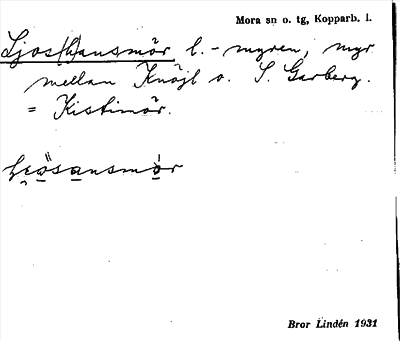 Mora sn o. tg, Kopparb. l.
Ljos(h)ansmör l. -myren, myr
mellan Knöjl o. S. Garberg.
= Kistimör.
Bror Lindén 1931